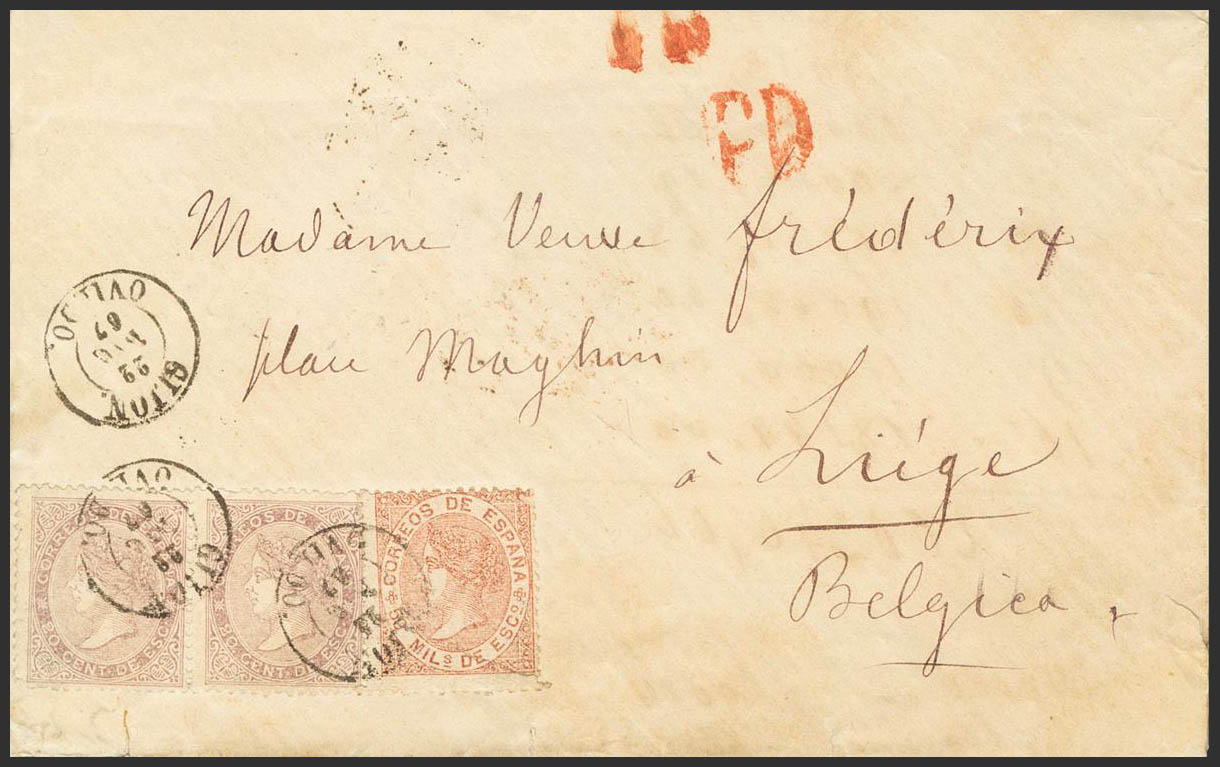 PD
PD
Madame Veuve Frédérix
place Maghin
à Liége
Belgica
GIJON.
29
67
OVIEDO.
CORREOS DE
CENT. DE ESCO
CORREOS DE
CENT. DE ESCO
CORREOS DE ESPANA
MILS DE ESCO